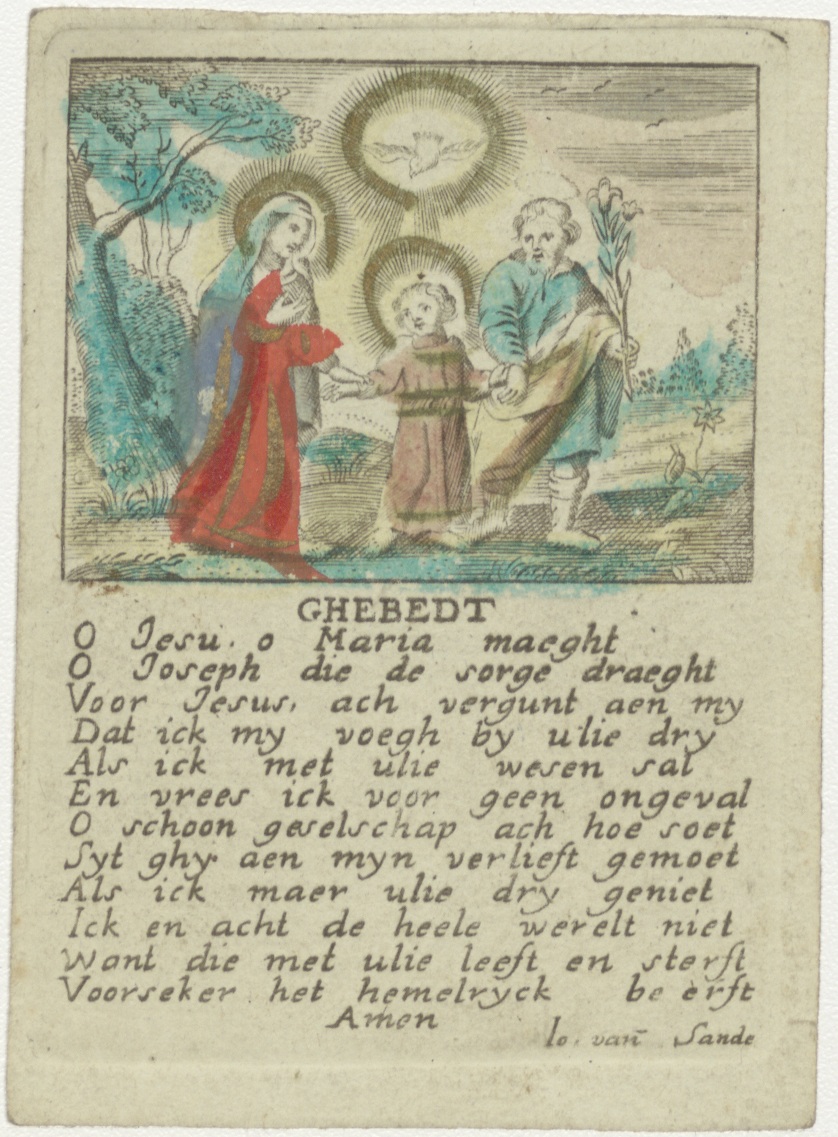 GHEBEDT
O Jesu. o Maria maeght
O Joseph die de sorge draeght
Voor Jesus, ach vergunt aen my
Dat ick my voegh by ulie dry
Als ick met ulie wesen sal
En vrees ick voor geen ongeval
O schoon geselschap ach hoe soet
Syt ghy aen myn verlieft gemoet
Als ick maer ulie dry geniet
Ick en acht de heele werelt niet
Want die met ulie leeft en sterft
Voorseker het hemelryck be erft
Amen
Io. van Sande